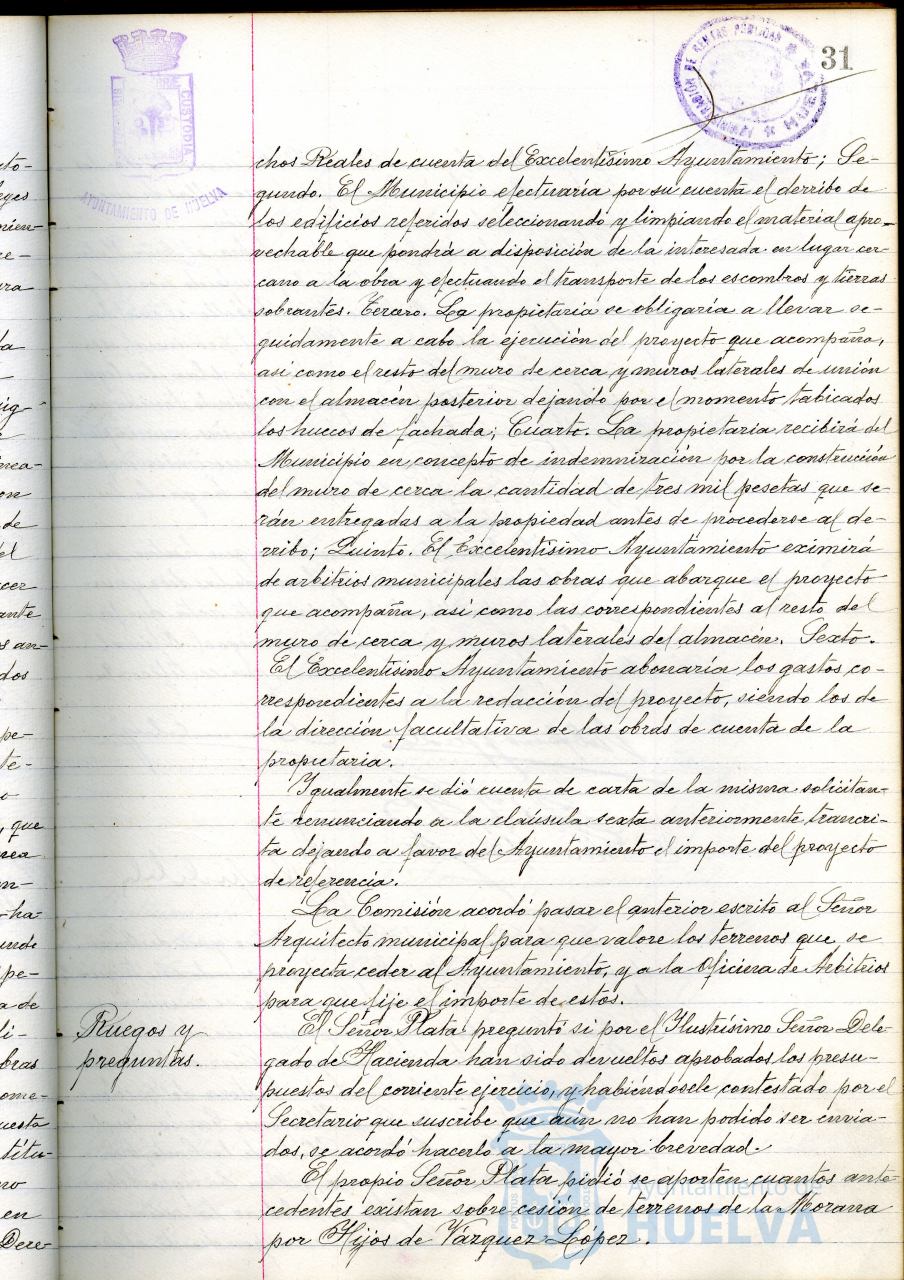 31
ADMINISTRACIÓN DE RENTAS PÚBLICAS * HUELVA *
CUSTODIA
AYUNTAMIENTO DE HUELVA
chos Reales de cuenta del Excelentísimo Ayuntamiento; Se-
gundo. El Municipio efectuaría por su cuenta el derribo de
los edificios referidos seleccionando y limpiando el material apro-
vechable que pondrá a disposición de la interesada en lugar cer-
cano a la obra y efectuando el transporte de los escombros y tierras
sobrantes. Tercero. La propietaria se obligaría a llevar se-
guidamente a cabo la ejecución del proyecto que acompaña,
así como el resto del muro de cerca y muros laterales de unión
con el almacén posterior dejando por el momento tabicados
los huecos de fachada; Cuarto. La propietaria recibirá del
Municipio en concepto de indemnización por la construcción
del muro de cerca la cantidad de tres mil pesetas que se-
rán entregadas a la propiedad antes de procederse al de-
rribo; Quinto. El Excelentísimo Ayuntamiento eximirá
de arbitrios municipales las obras que abarque el proyecto
que acompaña, así como las correspondientes al resto del
muro de cerca y muros laterales del almacén. Sexto.
El Excelentísimo Ayuntamiento abonaría los gastos co-
rrespondientes a la redacción del proyecto, siendo los de
la dirección facultativa de las obras de cuenta de la
propietaria.
Igualmente se dió cuenta de carta de la misma solicitan-
te renunciando a la cláusula sexta anteriormente trancri-
ta dejando a favor del Ayuntamiento el importe del proyecto
de referencia.
La Comisión acordó pasar el anterior escrito al Señor
Arquitecto municipal para que valore los terrenos que se
proyecta ceder al Ayuntamiento, y a la Oficina de Arbitrios
para que fije el importe de estos.
Ruegos y
preguntas.
El Señor Plata preguntó si por el Ilustrísimo Señor Dele-
gado de Hacienda han sido devueltos aprobados los presu-
puestos del corriente ejercicio, y habiéndosele contestado por el
Secretario que suscribe que aún no han podido ser envia-
dos, se acordó hacerlo a la mayor brevedad.
El propio Señor Plata pidió se aporten cuantos ante-
cedentes existan sobre cesión de terrenos de la Morana
por Hijos de Vázquez López.
Ayuntamiento de
HUELVA